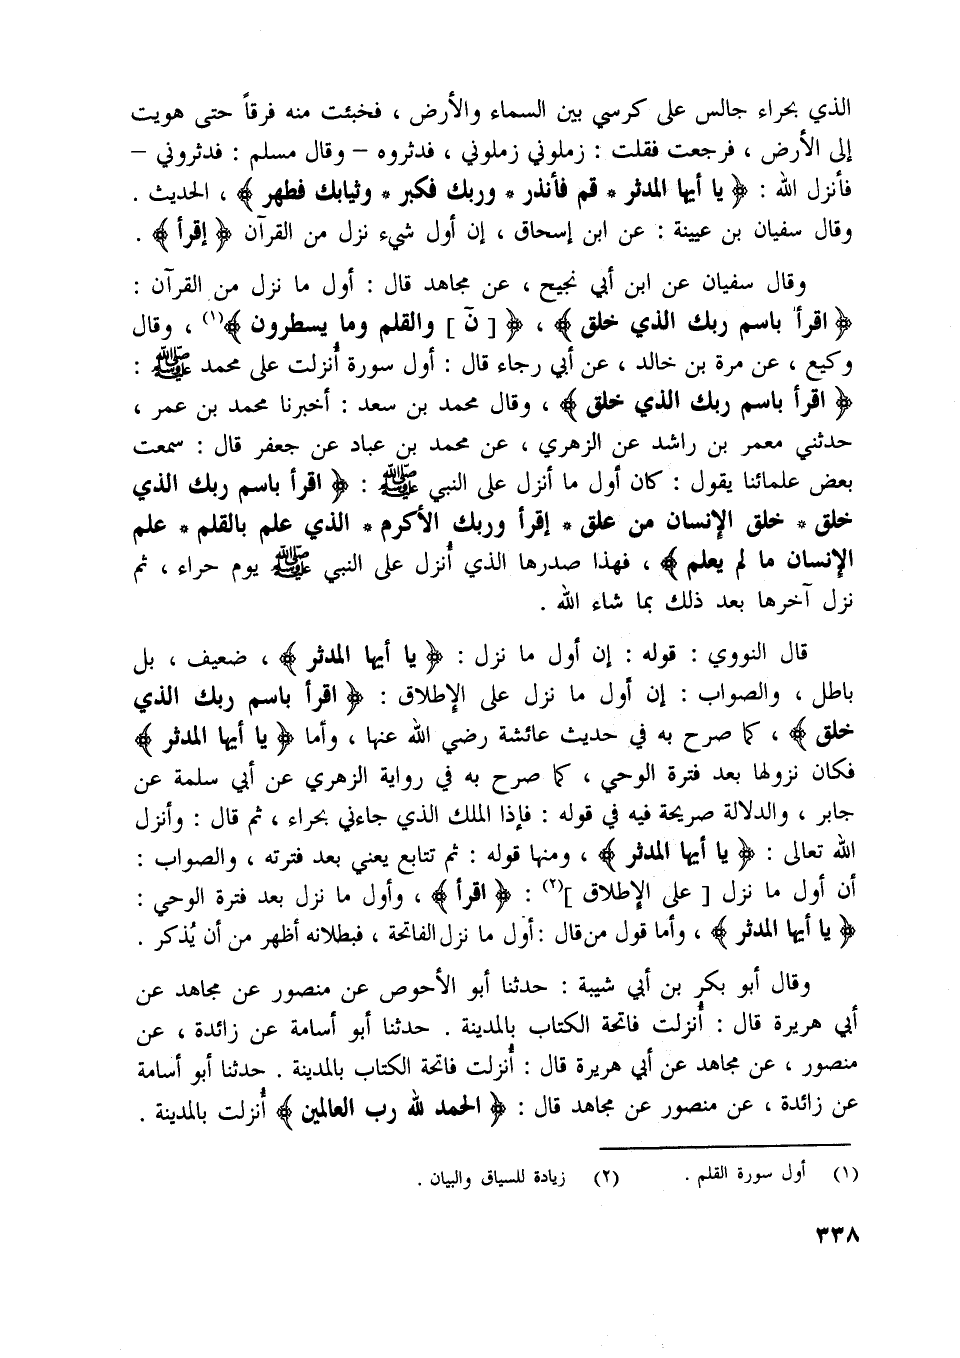 الذي بحراء جالس على كرسي بين السماء والأرض ، فخبئت منه فرقاً حتى هويت
إلى الأرض ، فرجعت فقلت : زملوني زملوني ، فدثروه – وقال مسلم : فدثروني –
فأنزل الله : ﴿ يا أيها المدثر * قم فأنذر * وربك فكبر * وثيابك فطهر ﴾ ، الحديث .
وقال سفيان بن عيينة : عن ابن إسحاق ، إن أول شيء نزل من القرآن ﴿ إقرأ ﴾ .
وقال سفيان عن ابن أبي نجيح ، عن مجاهد قال : أول ما نزل من القرآن :
﴿ اقرأ باسم ربك الذي خلق ﴾ ، ﴿ [ نٓ ] والقلم وما يسطرون ﴾(١) ، وقال
وكيع ، عن مرة بن خالد ، عن أبي رجاء قال : أول سورة أُنزلت على محمد ﷺ :
﴿ اقرأ باسم ربك الذي خلق ﴾ ، وقال محمد بن سعد : أخبرنا محمد بن عمر ،
حدثني معمر بن راشد عن الزهري ، عن محمد بن عباد عن جعفر قال : سمعت
بعض علمائنا يقول : كان أول ما أنزل على النبي ﷺ : ﴿ اقرأ باسم ربك الذي
خلق * خلق الإنسان من علق * إقرأ وربك الأكرم * الذي علم بالقلم * علم
الإنسان ما لم يعلم ﴾ ، فهذا صدرها الذي أُنزل على النبي ﷺ يوم حراء ، ثم
نزل آخرها بعد ذلك بما شاء الله .
قال النووي : قوله : إن أول ما نزل : ﴿ يا أيها المدثر ﴾ ، ضعيف ، بل
باطل ، والصواب : إن أول ما نزل على الإطلاق : ﴿ اقرأ باسم ربك الذي
خلق ﴾ ، كما صرح به في حديث عائشة رضي الله عنها ، وأما ﴿ يا أيها المدثر ﴾
فكان نزولها بعد فترة الوحي ، كما صرح به في رواية الزهري عن أبي سلمة عن
جابر ، والدلالة صريحة فيه في قوله : فإذا الملك الذي جاءني بحراء ، ثم قال : وأنزل
الله تعالى : ﴿ يا أيها المدثر ﴾ ، ومنها قوله : ثم تتابع يعني بعد فترته ، والصواب :
أن أول ما نزل [ على الإطلاق ](٢) : ﴿ اقرأ ﴾ ، وأول ما نزل بعد فترة الوحي :
﴿ يا أيها المدثر ﴾ ، وأما قول من قال : أول ما نزل الفاتحة ، فبطلانه أظهر من أن يُذكر .
وقال أبو بكر بن أبي شيبة : حدثنا أبو الأحوص عن منصور عن مجاهد عن
أبي هريرة قال : أُنزلت فاتحة الكتاب بالمدينة . حدثنا أبو أسامة عن زائدة ، عن
منصور ، عن مجاهد عن أبي هريرة قال : أُنزلت فاتحة الكتاب بالمدينة . حدثنا أبو أسامة
عن زائدة ، عن منصور عن مجاهد قال : ﴿ الحمد لله رب العالمين ﴾ أُنزلت بالمدينة .
(١) أول سورة القلم . (٢) زيادة للسياق والبيان .
٣٣٨